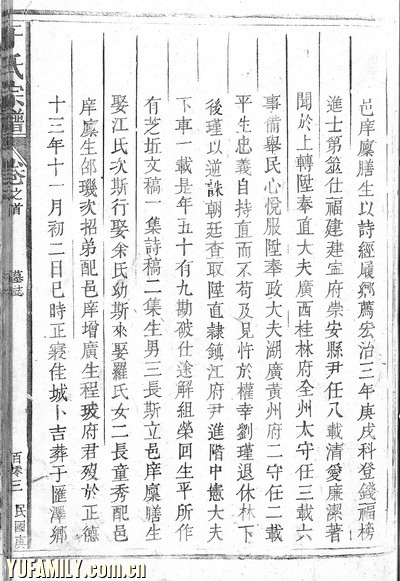 邑庠廩膳生以詩經履鄉薦宏治三年庚戌科登錢福榜
進士第筮仕福建建寧府崇安縣尹任八載清愛廉潔著
聞於上轉陞奉直大夫廣西桂林府全州太守任三載六
事備舉民心悅服陞奉政大夫湖廣黃州府二守任二載
平生忠義自持直而不苟及見忤於權幸劉瑾退休林下
後瑾以逆誅朝廷查取陞直隸鎮江府尹進階中憲大夫
下車一載是年五十有九勘破仕途解組榮回生平所作
有芝坵文稿一集詩稿二集生男三長斯立邑庠廩膳生
娶江氏次斯行娶余氏幼斯來娶羅氏女二長童秀配邑
庠廩生邵璣次招弟配邑庠增廣生程玻府君歿於正德
十三年十一月初二日巳時正寢佳城卜吉葬于匯澤鄉
于氏宗譜
卷之首
墓誌
百零三
民國庚
YUFAMILY.com.cn